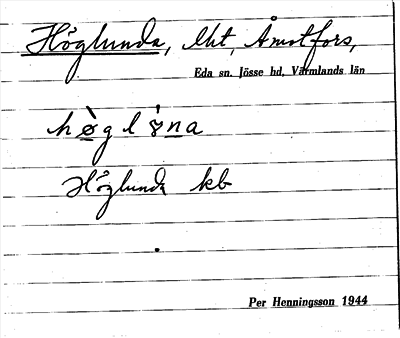 Höglunda, lht, Åmotfors,
Eda sn. Jösse hd, Värmlands län
Höglunda kb
Per Henningsson 1944